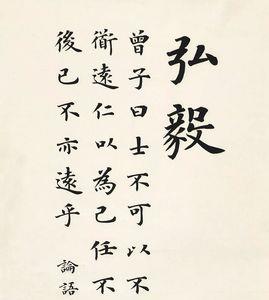 弘毅
曾子曰士不可以不
衜遠仁以為己任不
後已不亦遠乎 論語